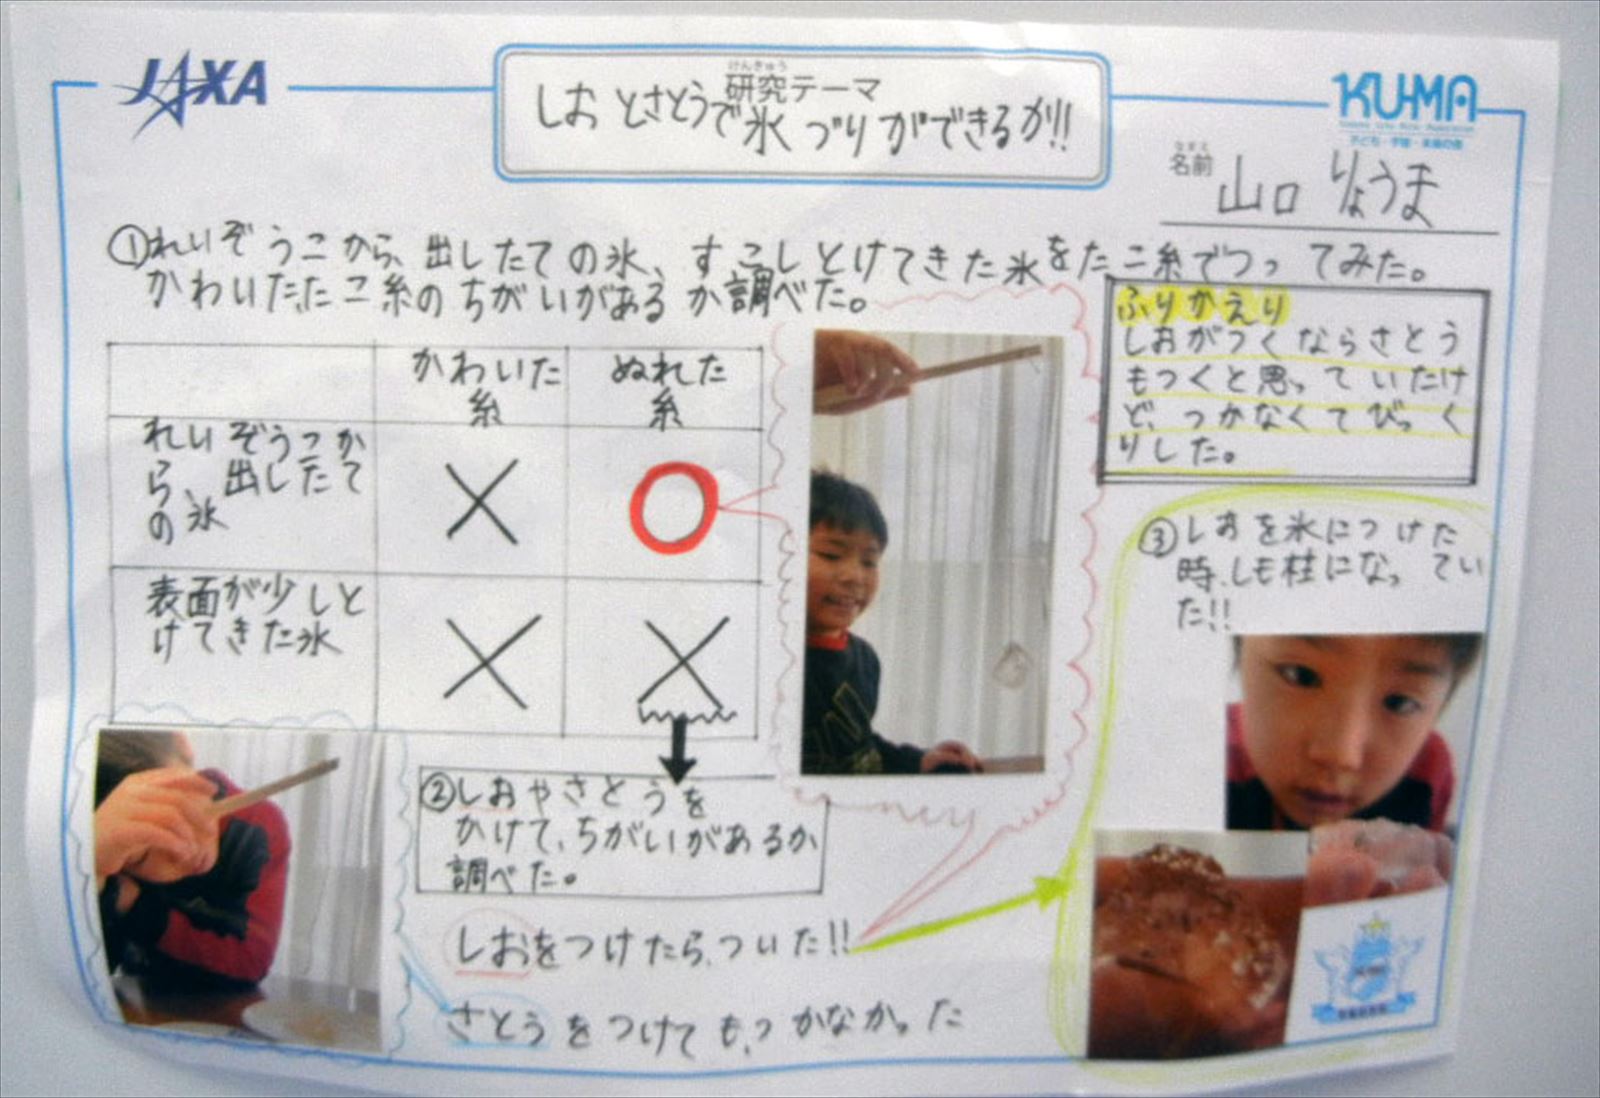 JAXA
けんきゅう
研究テーマ
しおとさとうで氷づりができるか!!
KU-MA
子ども・宇宙・未来の会
なまえ
名前 山口 りょうま
①れいぞうこから、出したての氷、すこしとけてきた氷をたこ糸でつってみた。
かわいたたこ糸のちがいがあるか調べた。
かわいた
糸
ぬれた
糸
れいぞうこか
ら、出したて
の氷
×
○
表面が少しと
けてきた氷
×
×
②しおやさとうを
かけて、ちがいがあるか
調べた。
しおをつけたら、ついた!!
さとうをつけても、つかなかった
ふりかえり
しおがつくならさとう
もつくと思っていたけ
ど、つかなくてびっく
りした。
③しおを氷につけた
時、しも柱になってい
た!!